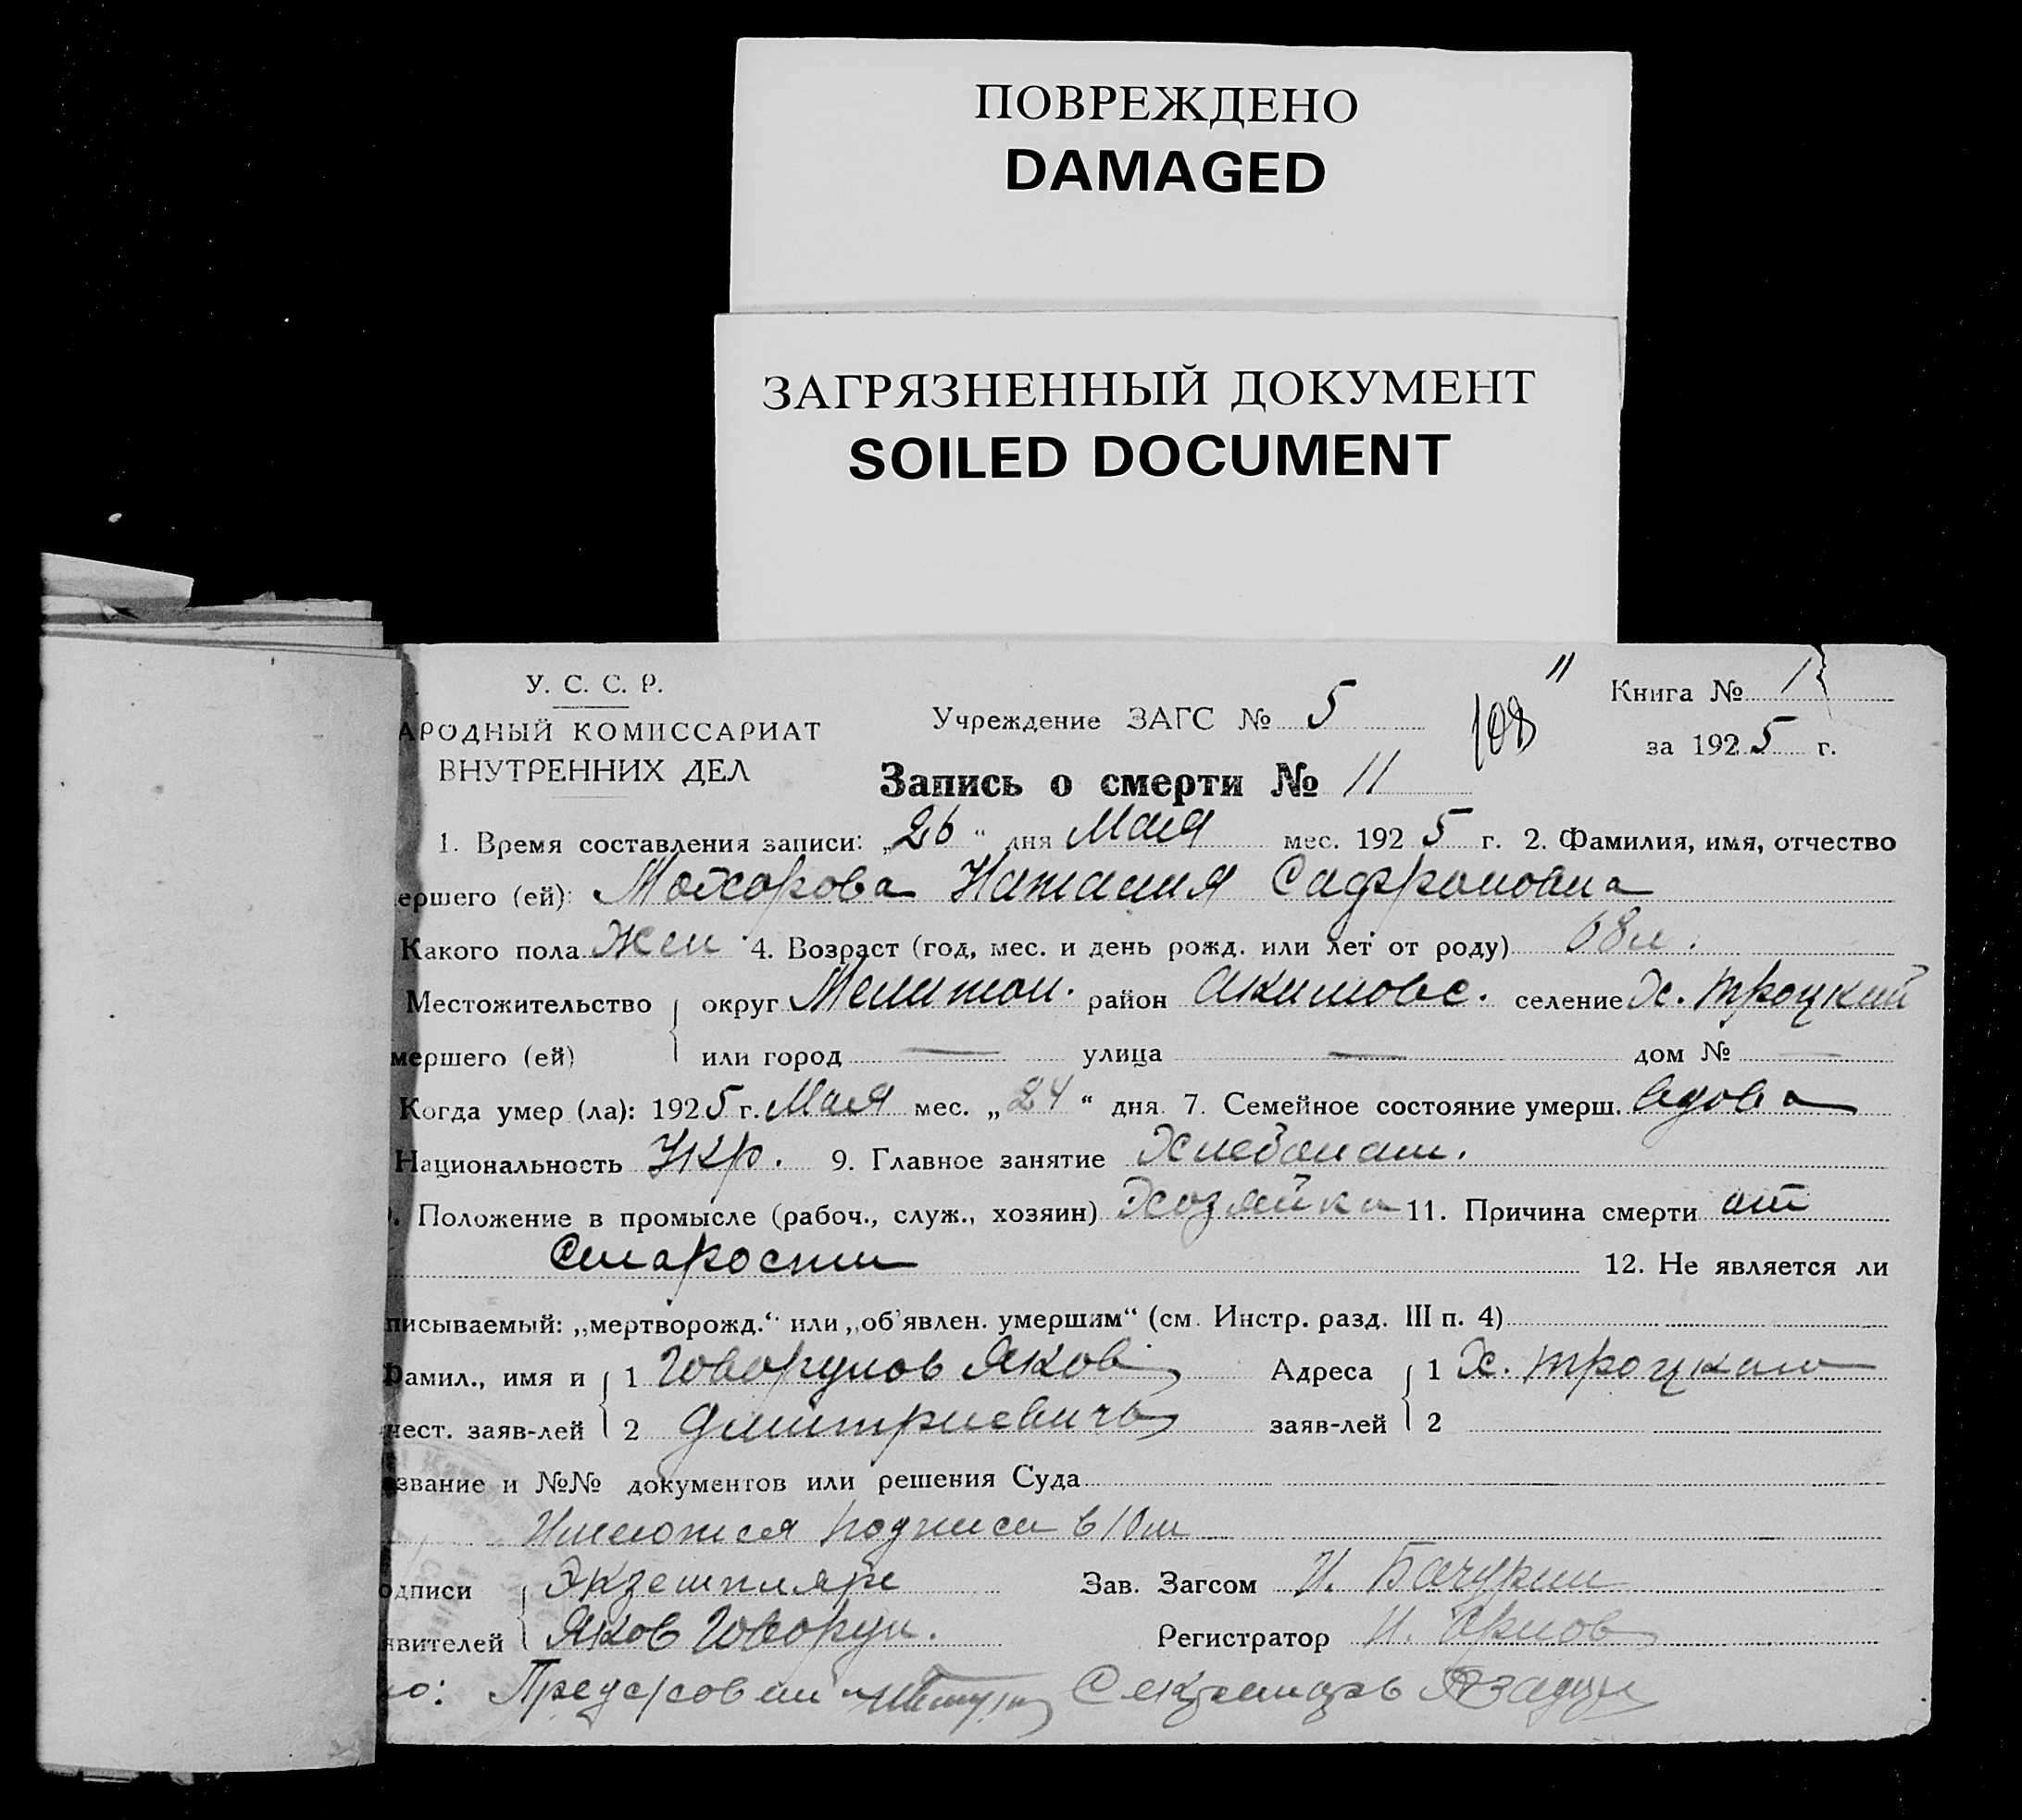 ПОВРЕЖДЕНО
DAMAGED
ЗАГРЯЗНЕННЫЙ ДОКУМЕНТ
SOILED DOCUMENT
У. С. С. Р.
АРОДНЫЙ КОМИССАРИАТ
ВНУТРЕННИХ ДЕЛ
Учреждение ЗАГС № 5
108
11
Книга № 1
за 1925 г.
Запись о смерти № 11
1. Время составления записи: „26“ дня Мая мес. 1925 г. 2. Фамилия, имя, отчество
ершего (ей): Махорова Наталия Сафроновна
Какого пола Жен. 4. Возраст (год, мес. и день рожд. или лет от роду) 68 л.
Местожительство округ Мелитоп. район Акимовс. селение Х. Троцкий
мершего (ей) или город — улица — дом № —
Когда умер (ла): 1925 г. Мая мес. „24“ дня. 7. Семейное состояние умерш. вдова
Национальность Укр. 9. Главное занятие Хлебопаш.
. Положение в промысле (рабоч., служ., хозяин) Хозяйка 11. Причина смерти от
Старости 12. Не является ли
писываемый: „мертворожд.“ или „об'явлен. умершим“ (см. Инстр. разд. III п. 4)
Фамил., имя и 1 Говорунов Яков Адреса 1 Х. Троцкаго
чест. заяв-лей 2 Дмитриевичъ заяв-лей 2
звание и №№ документов или решения Суда
Имеются подписи в 1ом
одписи Экземпляре Зав. Загсом И. Бачурин
явителей Яков Говорун. Регистратор И.
о: Секретарь